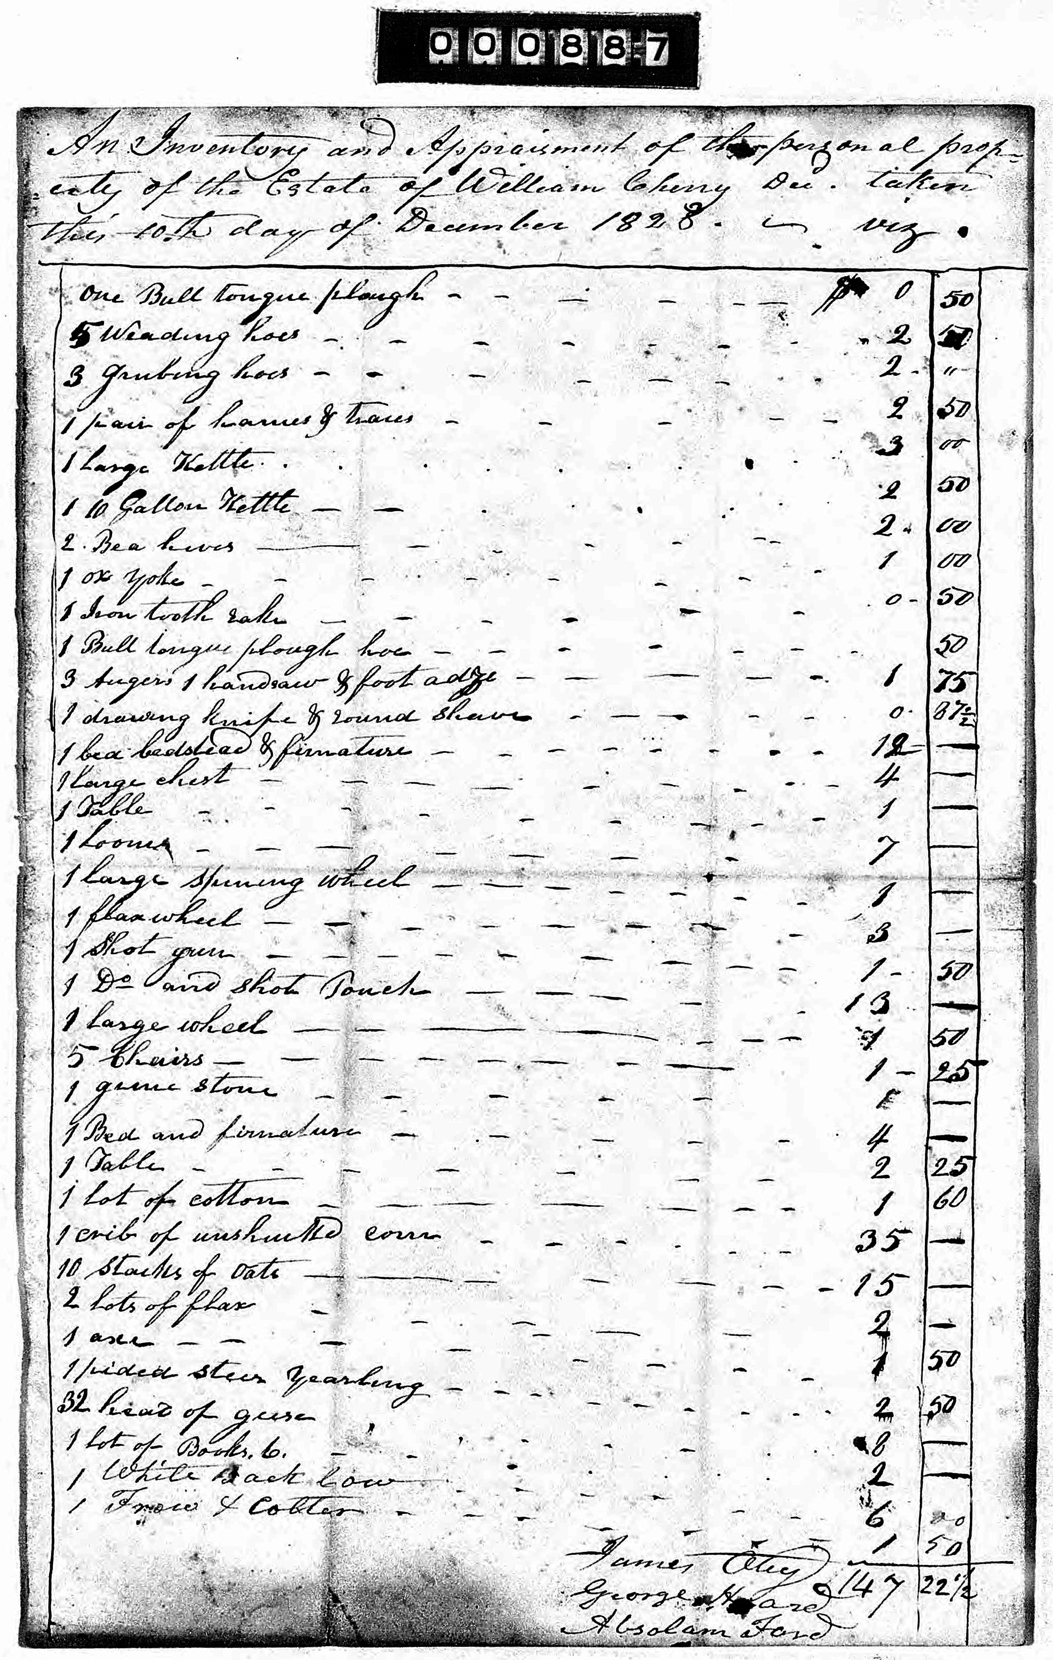 00088-7
An Inventory and Appraisment of the personal prop=
erty of the Estate of William Cherry Dec. taken
this 10th day of December 1828. viz.
One Bull tongue plough $ 0 50
5 Weading hoes 2 50
3 Grubing hoes 2 "
1 pair of hames & traces 2 50
1 Large Kettle 3 00
1 10 Gallon Kettle 2 50
2 Bea hives 2 00
1 ox yoke 1 00
1 Iron tooth rake 0 50
1 Bull tongue plough hoe 50
3 Augers 1 handsaw & foot adze 1 75
1 drawing knife & round shave 0 87 1/2
1 bed bedstead & firnature 12 —
1 large chest 4 —
1 Table 1 —
1 loom 7 —
1 large spinning wheel 1 —
1 flax wheel 3 —
1 Shot gun 1 50
1 Do and shot Pouch 13 —
1 large wheel 1 50
5 Chairs 1 25
1 grine stone 1 —
1 Bed and firnature 4 —
1 Table 2 25
1 lot of cotton 1 60
1 crib of unshucked corn 35 —
10 stacks of oats 15 —
2 lots of flax 2 —
1 axe 1 50
1 pided steer Yearling 2 50
32 head of geese 8 —
1 lot of Books. 6. 2 —
1 White back Cow 6 00
1 Frow & Colter 1 50
James
147 22 1/2
George
Absolam Ford